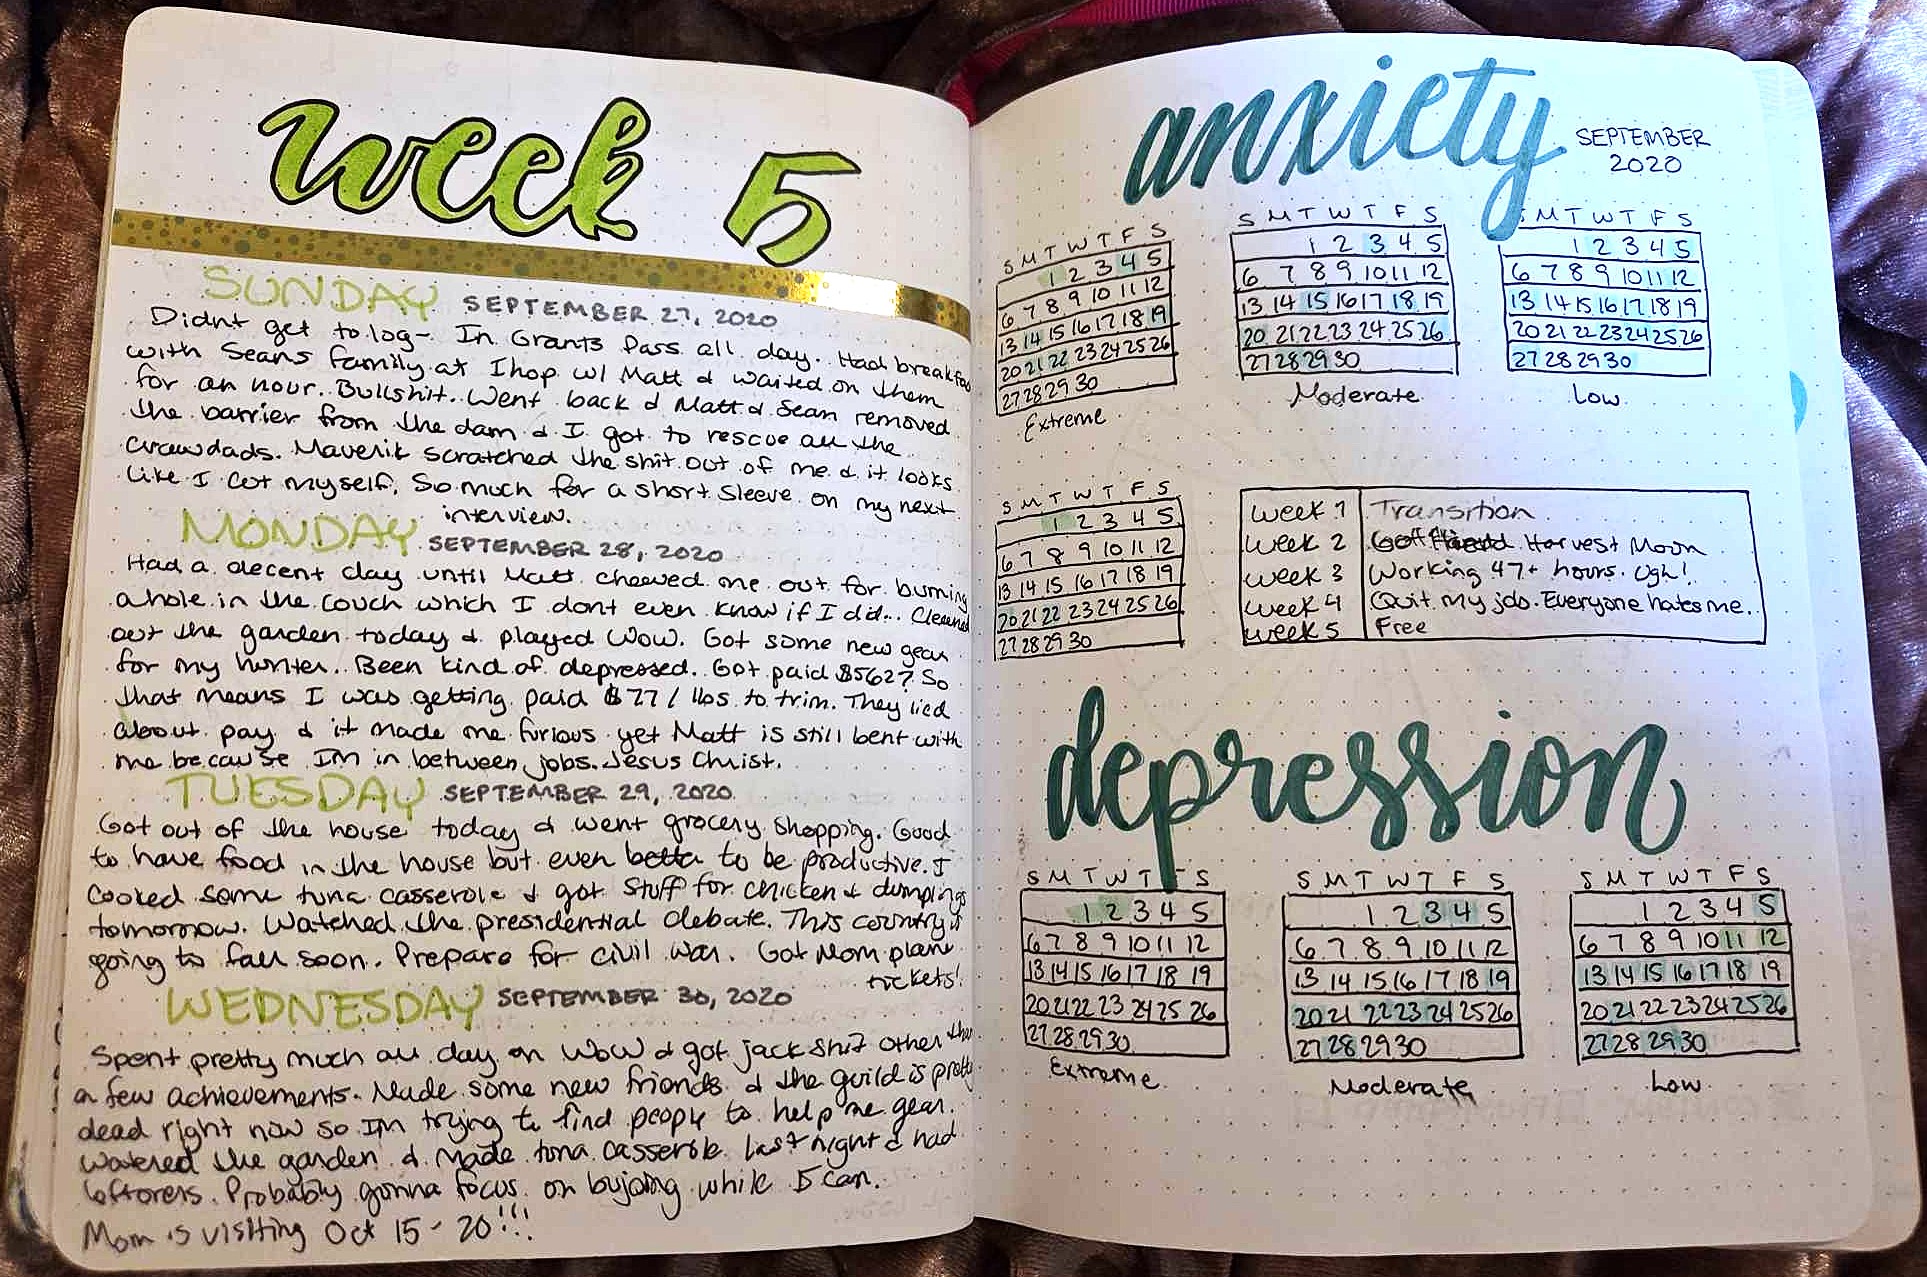 week 5
SUNDAY SEPTEMBER 27, 2020
Didnt get to log- In Grants Pass all day. Had breakfas
with Seans family at Ihop w/ Matt & waited on them
for an hour. Bullshit. Went back & Matt & Sean removed
the barrier from the dam & I got to rescue all the
crawdads. Maverik scratched the shit out of me & it looks
like I cut myself. So much for a short sleeve on my next
interview.
MONDAY SEPTEMBER 28, 2020
Had a decent day until Matt chewed me out for burning
a hole in the couch which I dont even know if I did... Cleaned
out the garden today & played WOW. Got some new gear
for my hunter. Been kind of depressed. Got paid $562? So
that means I was getting paid $77/lbs to trim. They lied
about pay & it made me furious yet Matt is still bent with
me because Im in between jobs. Jesus Christ.
TUESDAY SEPTEMBER 29, 2020
Got out of the house today & went grocery shopping. Good
to have food in the house but even betta to be productive. I
cooked some tuna casserole & got stuff for chicken & dumplings
tomorrow. Watched the presidential debate. This country is
going to fall soon. Prepare for civil war. Got Mom plane
tickets!
WEDNESDAY SEPTEMBER 30, 2020
Spent pretty much all day on WoW & got jack shit other than
a few achievements. Made some new friends & the guild is pretty
dead right now so Im trying to find people to help me gear.
Watered the garden & made tuna casserole last night & had
leftorers. Probably gonna focus on bujoing while I can.
Mom is visiting Oct 15-20!!!
anxiety
SEPTEMBER
2020
S M T W T F S
1 2 3 4 5
6 7 8 9 10 11 12
13 14 15 16 17 18 19
20 21 22 23 24 25 26
27 28 29 30
Extreme
S M T W T F S
1 2 3 4 5
6 7 8 9 10 11 12
13 14 15 16 17 18 19
20 21 22 23 24 25 26
27 28 29 30
Moderate
M T W T F S
1 2 3 4 5
6 7 8 9 10 11 12
13 14 15 16 17 18 19
20 21 22 23 24 25 26
27 28 29 30
Low
S M T W T F S
1 2 3 4 5
6 7 8 9 10 11 12
13 14 15 16 17 18 19
20 21 22 23 24 25 26
27 28 29 30
Week 1 Transition
Week 2 Harvest Moon
Week 3 Working 47+ hours. Ugh!
Week 4 Quit my job. Everyone hates me.
Week 5 Free
depression
S M T W T F S
1 2 3 4 5
6 7 8 9 10 11 12
13 14 15 16 17 18 19
20 21 22 23 24 25 26
27 28 29 30
Extreme
S M T W T F S
1 2 3 4 5
6 7 8 9 10 11 12
13 14 15 16 17 18 19
20 21 22 23 24 25 26
27 28 29 30
Moderate
S M T W T F S
1 2 3 4 5
6 7 8 9 10 11 12
13 14 15 16 17 18 19
20 21 22 23 24 25 26
27 28 29 30
Low